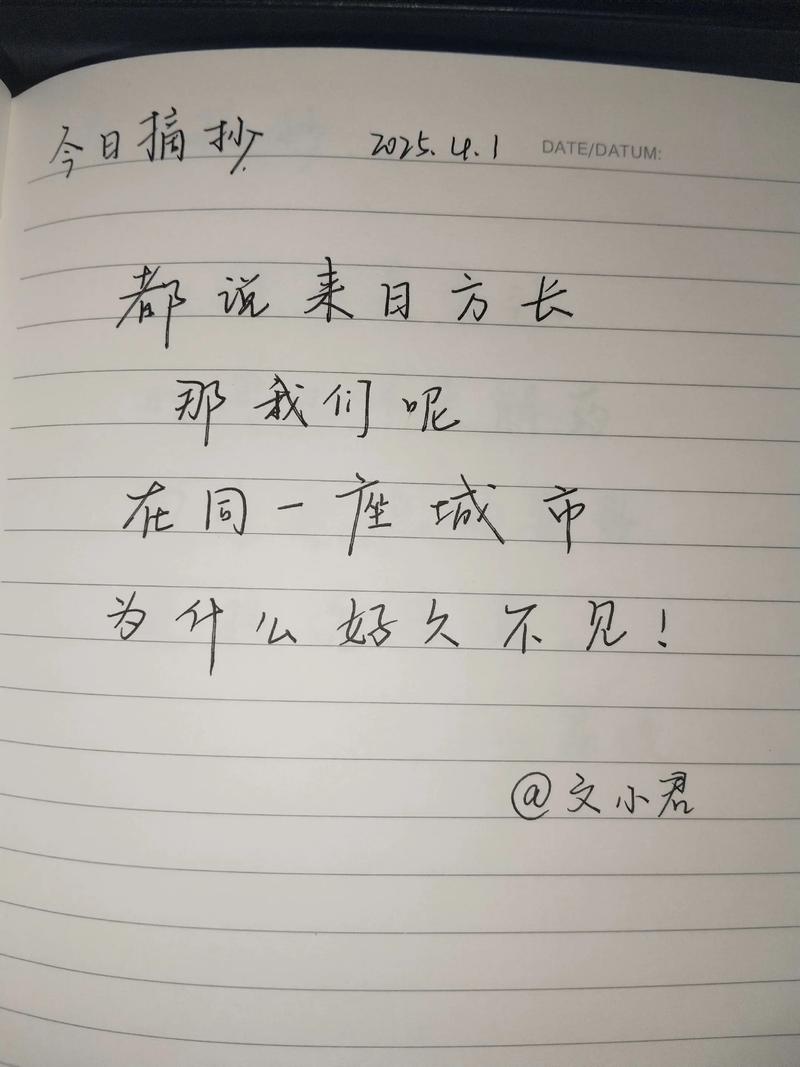 今日摘抄 2025.4.1 DATE/DATUM:
都说来日方长
那我们呢
在同一座城市
为什么好久不见！
@文小君